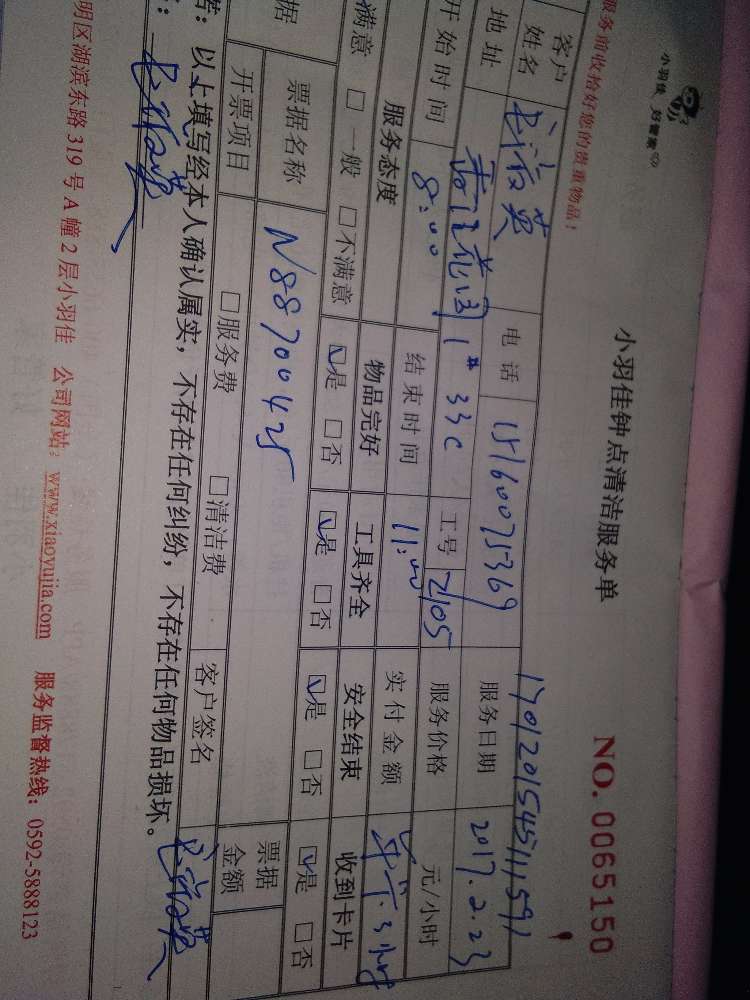 小羽佳 好管家
小羽佳钟点清洁服务单
NO. 0065150
服务前收拾好您的贵重物品!
1701201545111591
客户姓名 电话 15160075369 服务日期 2017.2.23
地址 1# 33C 工号 2105 服务价格 元/小时
开始时间 8:00 结束时间 11:00 实付金额 3小时
服务态度 物品完好 工具齐全 安全结束 收到卡片
满意 □一般 □不满意 ☑是 □否 ☑是 □否 ☑是 □否 ☑是 □否
据 票据名称 N88700425 票据金额
开票项目 □服务费 □清洁费 客户签名
以上填写经本人确认属实,不存在任何纠纷,不存在任何物品损坏。
明区湖滨东路319号A幢2层小羽佳 公司网站:www.xiaoyujia.com 服务监督热线:0592-5888123